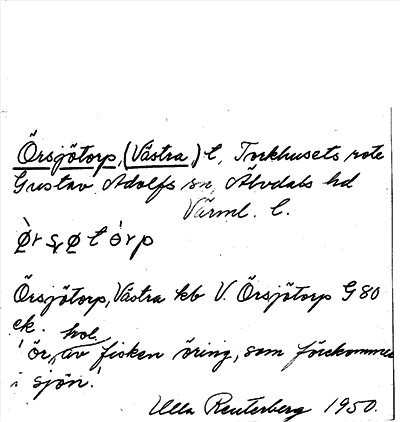 Örsjötorp, (Västra) t, Torkhusets rote
Gustav Adolfs sn, Älvdals hd
Värml. l.
Örsjötorp, Västra kb V. Örsjötorp G 80
ek. hol.
'ör, av fisken öring, som förekommer
i sjön.'
Ulla Reuterberg 1950.